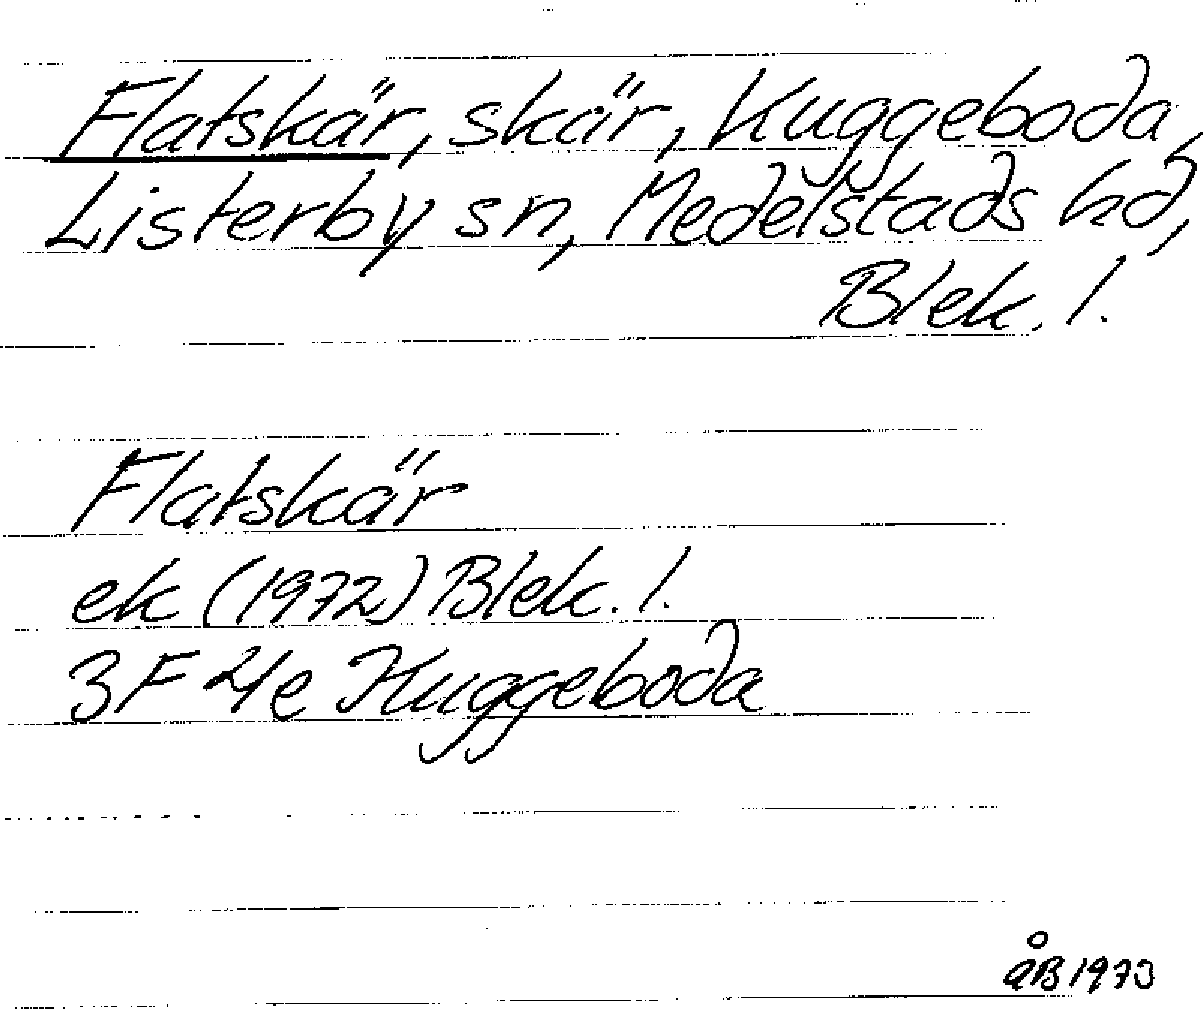 Flatskär, skär, Kuggeboda,
Listerby sn, Medelstads hd,
Blek. l.
Flatskär
ek (1972) Blek. l.
3F 4e Kuggeboda
åB 1973